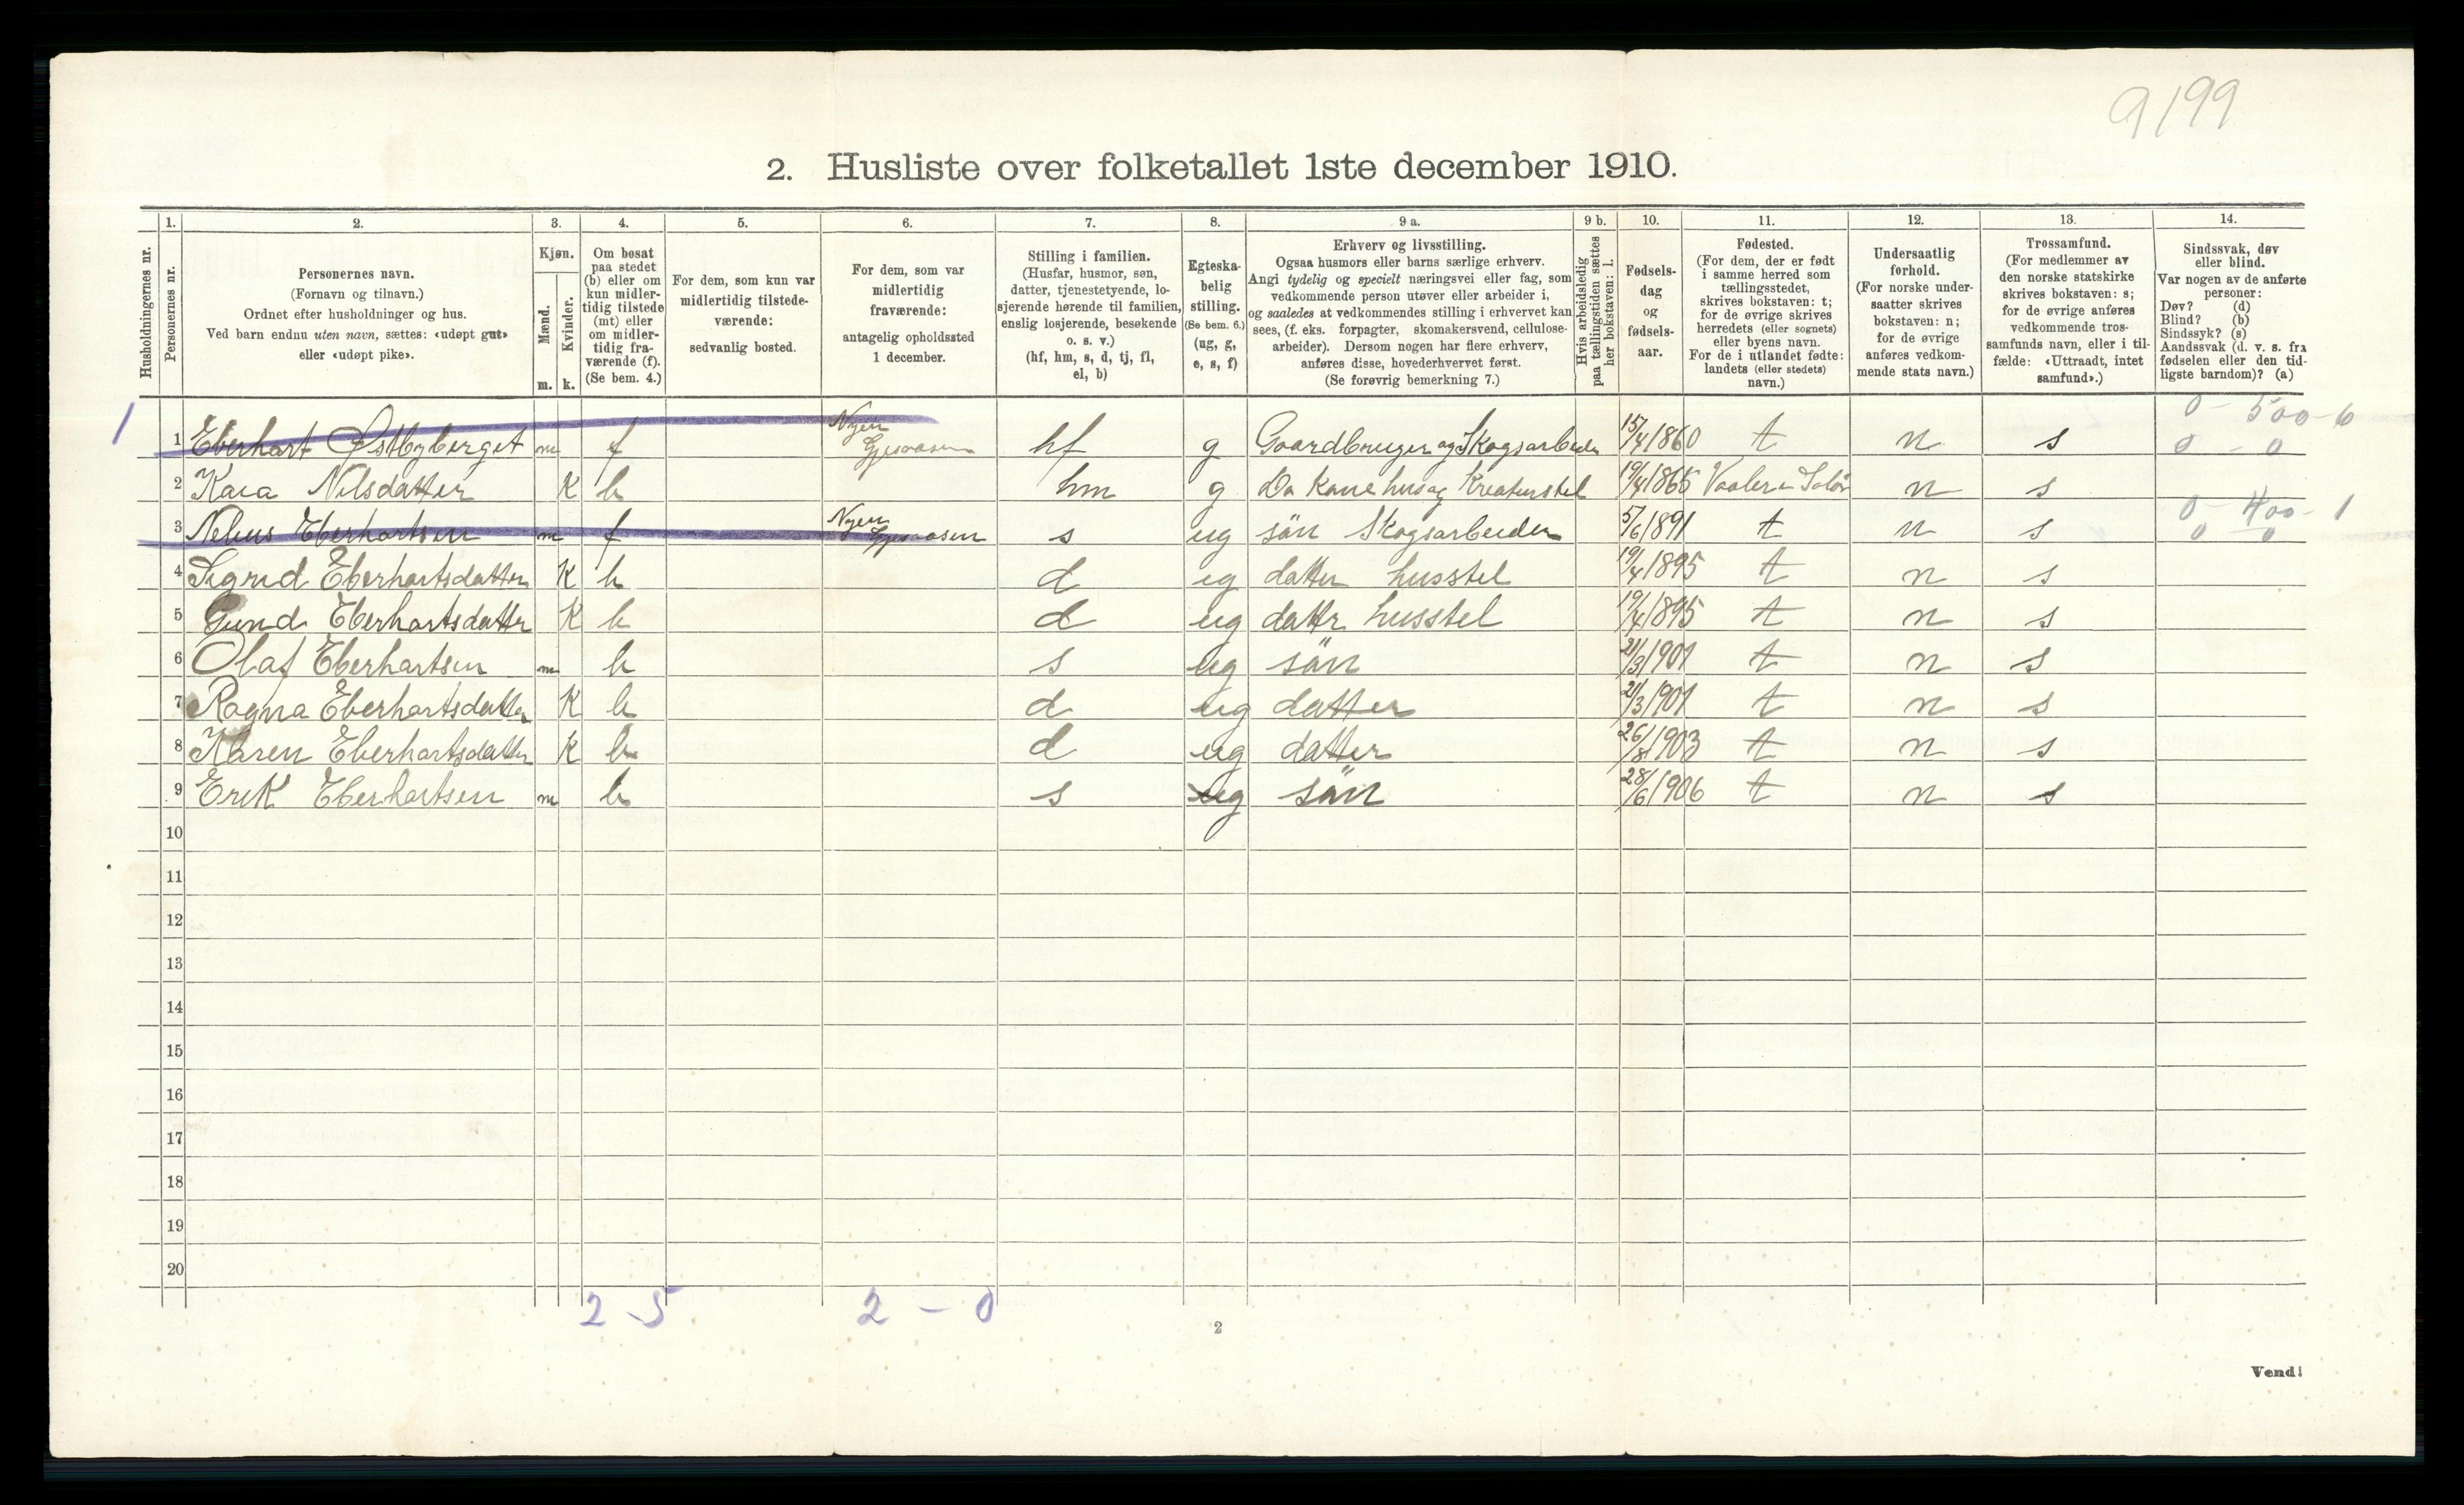 9199
2. Husliste over folketallet 1ste december 1910.
1. 2. 3. 4. 5. 6. 7. 8. 9 a. 9 b. 10. 11. 12. 13. 14.
Husholdningernes nr.
Personernes nr.
Personernes navn.
(Fornavn og tilnavn.)
Ordnet efter husholdninger og hus.
Ved barn endnu uten navn, sættes: «udøpt gut»
eller «udøpt pike».
Kjøn.
Mænd.
Kvinder.
m. k.
Om bosat
paa stedet
(b) eller om
kun midler-
tidig tilstede
(mt) eller
om midler-
tidig fra-
værende (f).
(Se bem. 4.)
For dem, som kun var
midlertidig tilstede-
værende:
sedvanlig bosted.
For dem, som var
midlertidig
fraværende:
antagelig opholdssted
1 december.
Stilling i familien.
(Husfar, husmor, søn,
datter, tjenestetyende, lo-
sjerende hørende til familien,
enslig losjerende, besøkende
o. s. v.)
(hf, hm, s, d, tj, fl,
el, b)
Egteska-
belig
stilling.
(Se bem. 6.)
(ug, g,
e, s, f)
Erhverv og livsstilling.
Ogsaa husmors eller barns særlige erhverv.
Angi tydelig og specielt næringsvei eller fag, som
vedkommende person utøver eller arbeider i,
og saaledes at vedkommendes stilling i erhvervet kan
sees, (f. eks. forpagter, skomakersvend, cellulose-
arbeider). Dersom nogen har flere erhverv,
anføres disse, hovederhvervet først.
(Se forøvrig bemerkning 7.)
Hvis arbeidsledig
paa tællingstiden sættes
her bokstaven: l.
Fødsels-
dag
og
fødsels-
aar.
Fødested.
(For dem, der er født
i samme herred som
tællingsstedet,
skrives bokstaven: t;
for de øvrige skrives
herredets (eller sognets)
eller byens navn.
For de i utlandet fødte:
landets (eller stedets)
navn.)
Undersaatlig
forhold.
(For norske under-
saatter skrives
bokstaven: n;
for de øvrige
anføres vedkom-
mende stats navn.)
Trossamfund.
(For medlemmer av
den norske statskirke
skrives bokstaven: s;
for de øvrige anføres
vedkommende tros-
samfunds navn, eller i til-
fælde: «Uttraadt, intet
samfund».)
Sindssvak, døv
eller blind.
Var nogen av de anførte
personer:
Døv? (d)
Blind? (b)
Sindssyk? (s)
Aandssvak (d. v. s. fra
fødselen eller den tid-
ligste barndom)? (a)
0 - 500 - 6
1 1 Eberhart Østbyberget m f Nyen Gjesaasen hf g Gaardbruger og Skogsarbeider 15/4 1860 t n s 0 - 0
2 Kara Nilsdatter K b hm g Do Kone hus og Kreaturstel 19/4 1865 Vaaler i Solør n s
0 - 400 - 1
3 Nelius Eberhartsen m f Nyen Gjesaasen s ug sön Skogsarbeider 5/6 1891 t n s 0 - 0
4 Sigrid Eberhartsdatter K b d ug datter husstel 19/4 1895 t n s
5 Gund Eberhartsdatter K b d ug dattr husstel 19/4 1895 t n s
6 Olaf Eberhartsen m b s ug sön 21/3 1901 t n s
7 Ragna Eberhartsdatter K b d ug datter 21/3 1901 t n s
8 Karen Eberhartsdatter K b d ug datter 26/8 1903 t n s
9 Erik Eberhartsen m b s ug sön 28/6 1906 t n s
10
11
12
13
14
15
16
17
18
19
20
2 - 5 2 - 0
2
Vend!